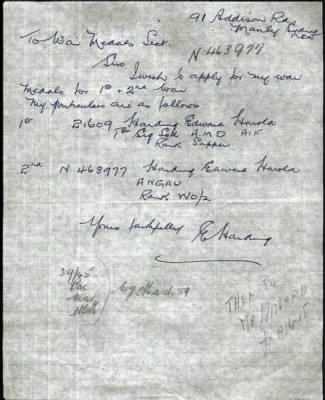 91 Addison Rd
Manly
To War Medals Sect
N 463977
Sirs
I wish to apply for my war
medals for 1st + 2nd War
My particulars are as follows
1st 21609 Harding Edward Harold
1st Sig Sqd A.M.D AIF
Rank Sapper
2nd N 463977 Harding Edward Harold
ANGAU
Rank WO/2
Yours faithfully E Harding
39/45
Pac
War
THEN TO
MR